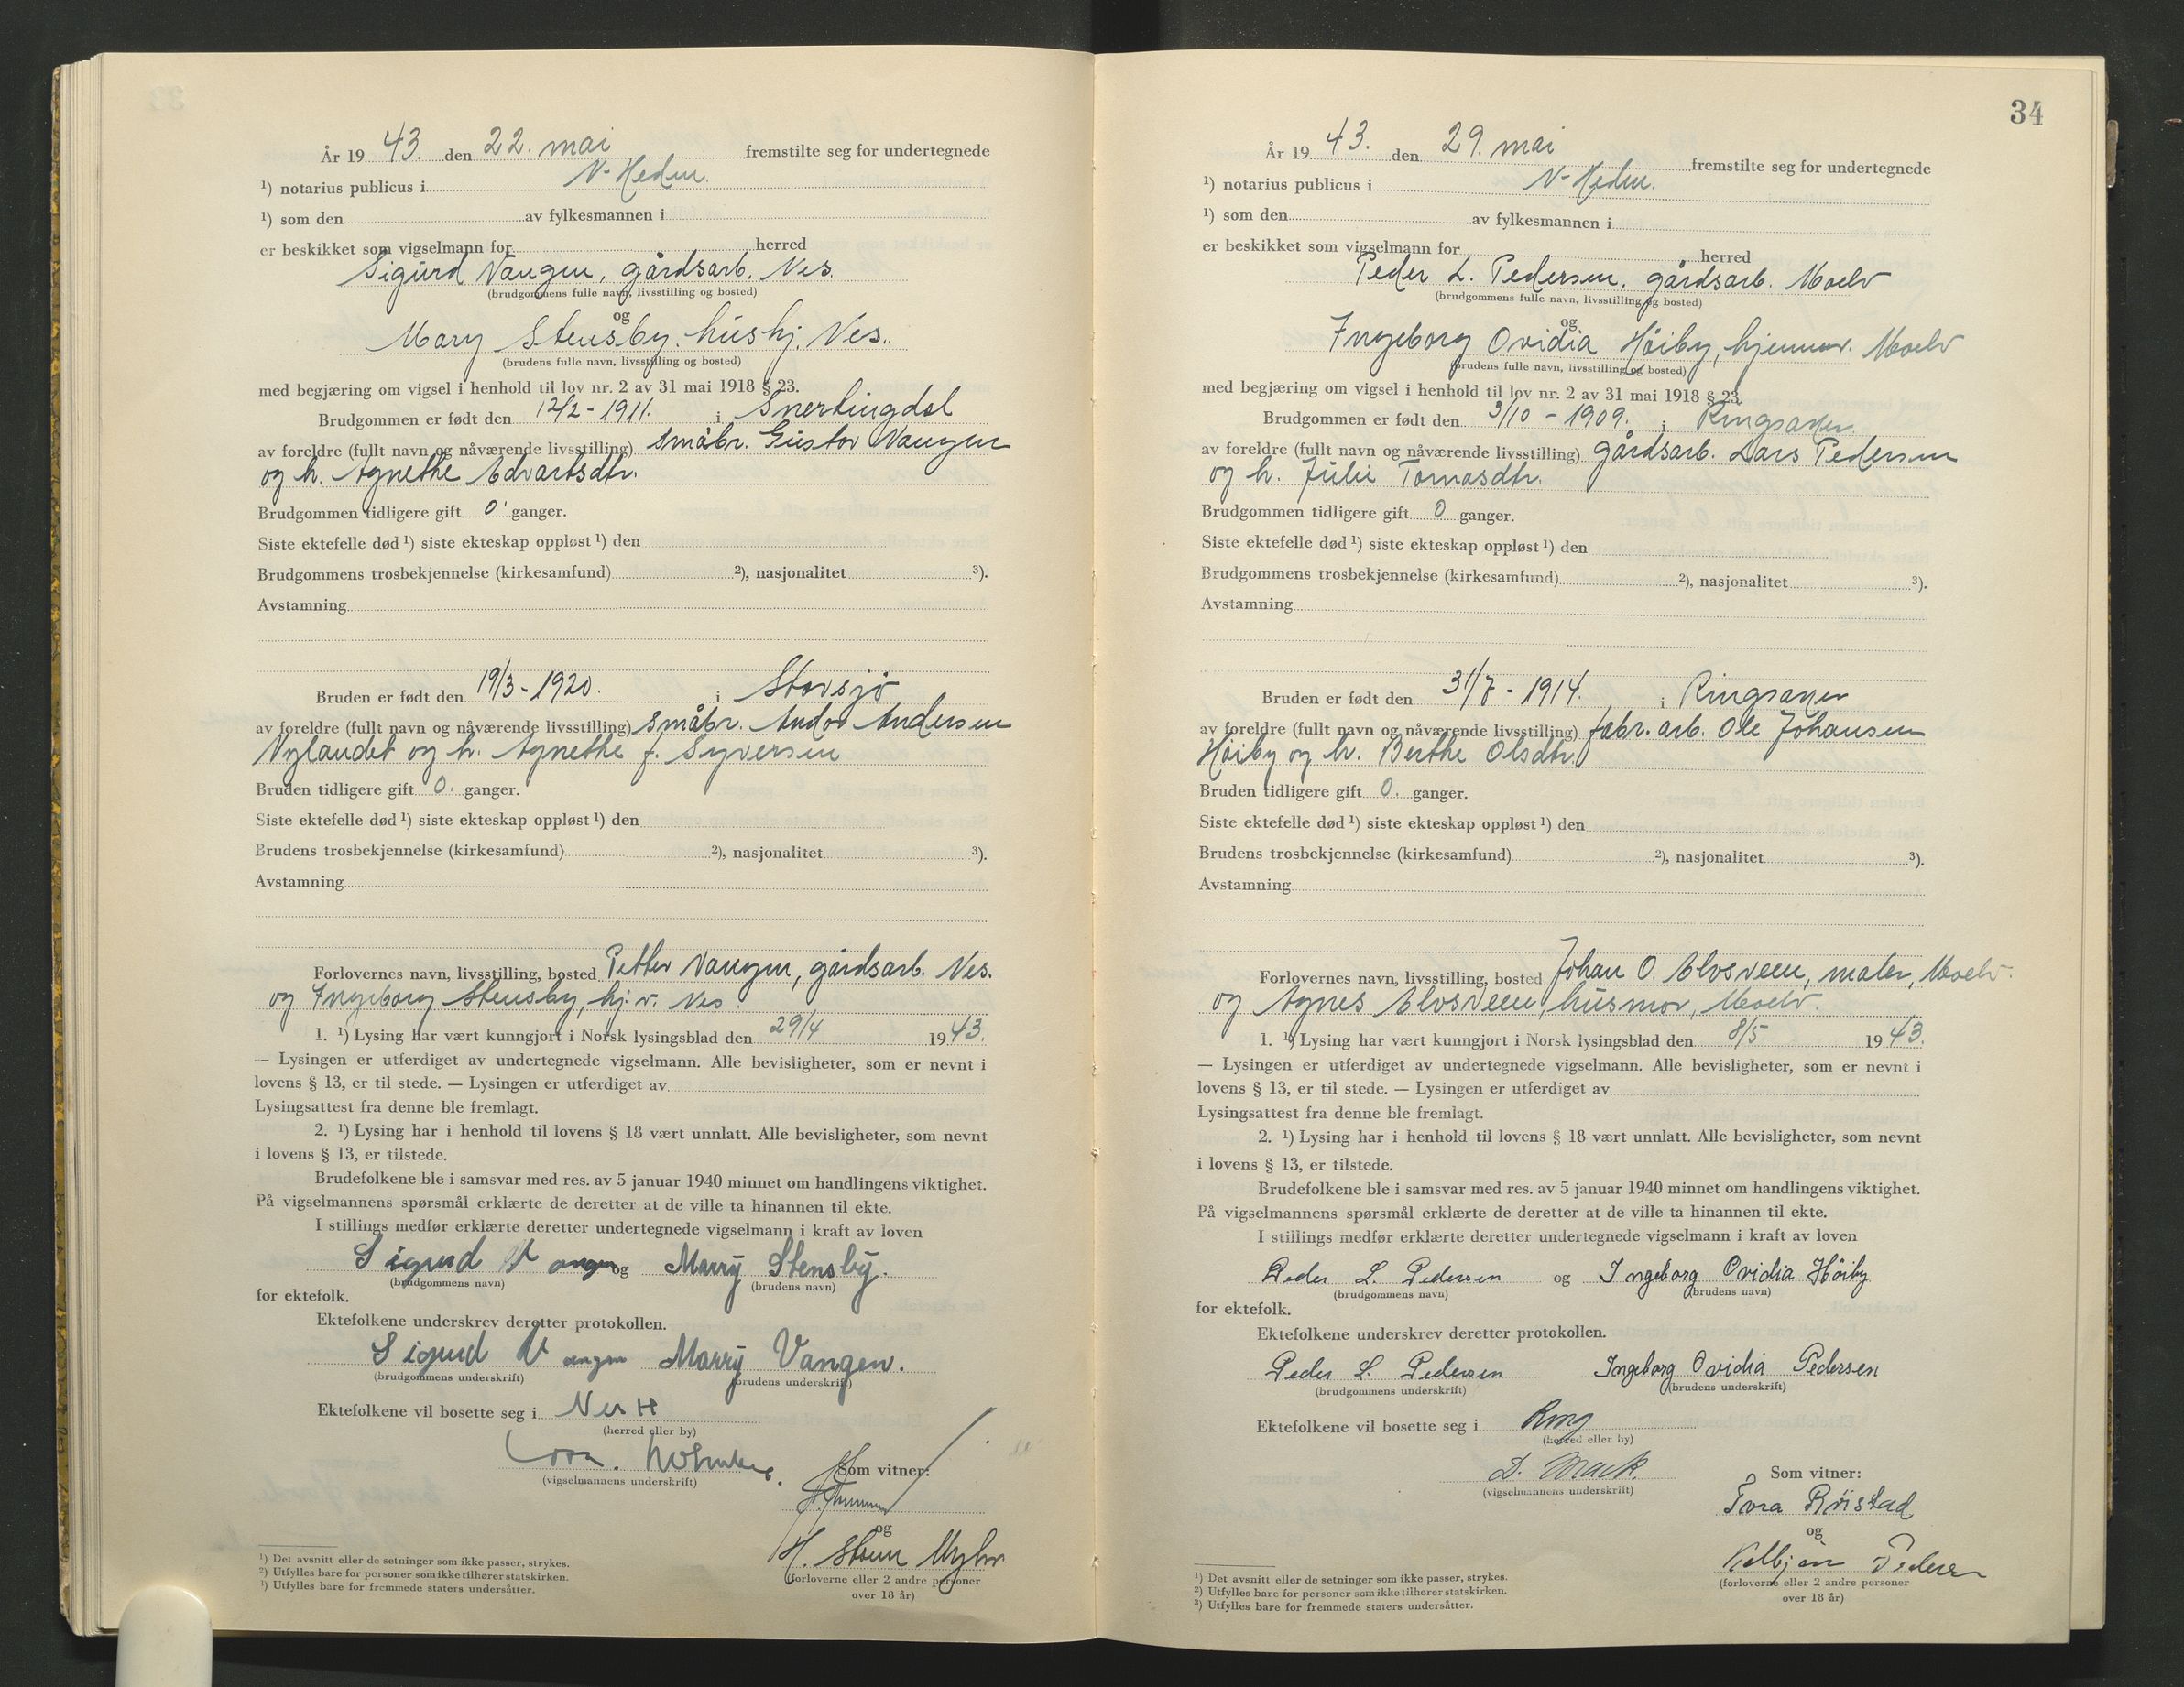 År 19 43. den 22. mai fremstilte seg for undertegnede
¹) notarius publicus i N-Hedm.
¹) som den av fylkesmannen i
er beskikket som vigselmann for herred
Sigurd Vangen, gårdsarb. Nes.
(brudgommens fulle navn, livsstilling og bosted)
og
Mary Stensby. hushj. Nes.
(brudens fulle navn, livsstilling og bosted)
med begjæring om vigsel i henhold til lov nr. 2 av 31 mai 1918 § 23.
Brudgommen er født den 12/2-1911. i Snertingdal
av foreldre (fullt navn og nåværende livsstilling) småbr. Gustav Vangen
og h. Agnethe Edvartsdtr.
Brudgommen tidligere gift 0 ganger.
Siste ektefelle død ¹) siste ekteskap oppløst ¹) den
Brudgommens trosbekjennelse (kirkesamfund) ²), nasjonalitet ³).
Avstamning
Bruden er født den 19/3-1920. i Stavsjø
av foreldre (fullt navn og nåværende livsstilling) småbr. Andor Andersen
Nylaudet og h. Agnethe f. Syversen
Bruden tidligere gift 0. ganger.
Siste ektefelle død ¹) siste ekteskap oppløst ¹) den
Brudens trosbekjennelse (kirkesamfund) ²), nasjonalitet ³).
Avstamning
Forlovernes navn, livsstilling, bosted Petter Vangen, gårdsarb. Nes.
og Ingeborg Stensby, hj. v. Nes
1. ¹) Lysing har vært kunngjort i Norsk lysingsblad den 29/4 1943.
— Lysingen er utferdiget av undertegnede vigselmann. Alle bevisligheter, som er nevnt i
lovens § 13, er til stede. — Lysingen er utferdiget av
Lysingsattest fra denne ble fremlagt.
2. ¹) Lysing har i henhold til lovens § 18 vært unnlatt. Alle bevisligheter, som nevnt
i lovens § 13, er tilstede.
Brudefolkene ble i samsvar med res. av 5 januar 1940 minnet om handlingens viktighet.
På vigselmannens spørsmål erklærte de deretter at de ville ta hinannen til ekte.
I stillings medfør erklærte deretter undertegnede vigselmann i kraft av loven
Sigurd Vangen og Marry Stensby.
(brudgommens navn) (brudens navn)
for ektefolk.
Ektefolkene underskrev deretter protokollen.
Sigurd Vangen Marry Vangen.
(brudgommens underskrift) (brudens underskrift)
Ektefolkene vil bosette seg i Nes H
(herred eller by)
(vigselmannens underskrift)
Som vitner:
og
H. Steen
(forloverne eller 2 andre personer
over 18 år)
¹) Det avsnitt eller de setninger som ikke passer, strykes.
²) Utfylles bare for personer som ikke tilhører statskirken.
³) Utfylles bare for fremmede staters undersåtter.
34
År 19 43. den 29. mai fremstilte seg for undertegnede
¹) notarius publicus i N-Hedm.
¹) som den av fylkesmannen i
er beskikket som vigselmann for herred
Peder L. Pedersen, gårdsarb. Moelv
(brudgommens fulle navn, livsstilling og bosted)
og
Ingeborg Ovidia Höiby, hjemmev. Moelv
(brudens fulle navn, livsstilling og bosted)
med begjæring om vigsel i henhold til lov nr. 2 av 31 mai 1918 § 23.
Brudgommen er født den 3/10-1909. i Ringsaker.
av foreldre (fullt navn og nåværende livsstilling) gårdsarb. Lars Pedersen
og h. Julie Tomasdtr.
Brudgommen tidligere gift 0 ganger.
Siste ektefelle død ¹) siste ekteskap oppløst ¹) den
Brudgommens trosbekjennelse (kirkesamfund) ²), nasjonalitet ³).
Avstamning
Bruden er født den 31/7-1914. i Ringsaker
av foreldre (fullt navn og nåværende livsstilling) fabr. arb. Ole Johansen
Höiby og h. Berthe Olsdtr.
Bruden tidligere gift 0. ganger.
Siste ektefelle død ¹) siste ekteskap oppløst ¹) den
Brudens trosbekjennelse (kirkesamfund) ²), nasjonalitet ³).
Avstamning
Forlovernes navn, livsstilling, bosted Johan O. Elosveen, maler, Moelv.
og Agnes Elosveen, husmor, Moelv.
1. ¹) Lysing har vært kunngjort i Norsk lysingsblad den 8/5 1943.
— Lysingen er utferdiget av undertegnede vigselmann. Alle bevisligheter, som er nevnt i
lovens § 13, er til stede. — Lysingen er utferdiget av
Lysingsattest fra denne ble fremlagt.
2. ¹) Lysing har i henhold til lovens § 18 vært unnlatt. Alle bevisligheter, som nevnt
i lovens § 13, er tilstede.
Brudefolkene ble i samsvar med res. av 5 januar 1940 minnet om handlingens viktighet.
På vigselmannens spørsmål erklærte de deretter at de ville ta hinannen til ekte.
I stillings medfør erklærte deretter undertegnede vigselmann i kraft av loven
Peder L. Pedersen og Ingeborg Ovidia Höiby
(brudgommens navn) (brudens navn)
for ektefolk.
Ektefolkene underskrev deretter protokollen.
Peder L. Pedersen Ingeborg Ovidia Pedersen
(brudgommens underskrift) (brudens underskrift)
Ektefolkene vil bosette seg i Ring
(herred eller by)
D. Mack.
(vigselmannens underskrift)
Som vitner:
Tora Röistad
og
Kolbjörn Pedersen
(forloverne eller 2 andre personer
over 18 år)
¹) Det avsnitt eller de setninger som ikke passer, strykes.
²) Utfylles bare for personer som ikke tilhører statskirken.
³) Utfylles bare for fremmede staters undersåtter.